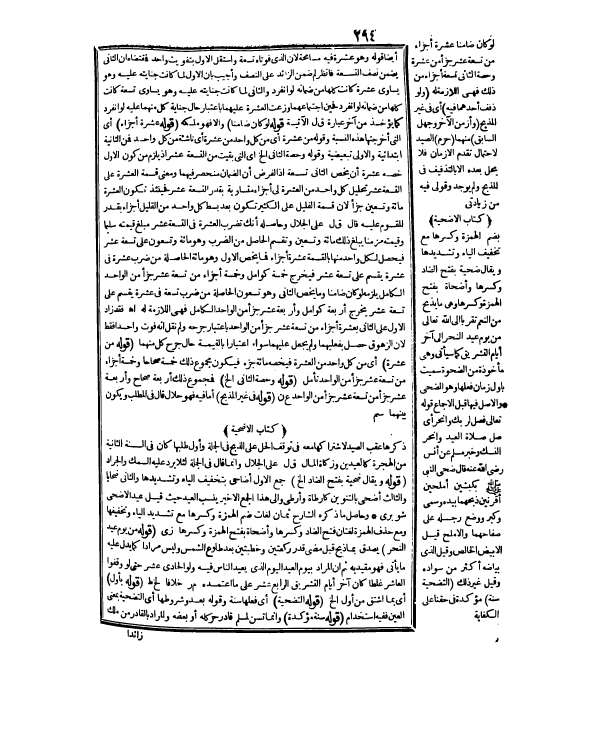 ٢٩٤
لو كان ضامنا عشرة أجزاء
من تسعة عشر جزأ من عشرة
وحصة الثانى تسعة أجزاء من
ذلك فهى اللازمة له (ولو
ذفف أحدهما فيه) أى فى غير
المذبح (وأزمن الآخر وجهل
السابق) منهما (حرم) الصيد
لاحتمال تقدم الازمان فلا
يحل بعده الا بالتذفيف فى
المذبح ولم يوجد وقولى فيه
من زيادتى
﴿كتاب الاضحية﴾
بضم الهمزة وكسرها مع
تخفيف الياء وتشديدها
ويقال ضحية بفتح الضاد
وكسرها وأضحاة بفتح
الهمزة وكسرها وهى ما يذبح
من النعم تقربا الى الله تعالى
من يوم عيد النحر الى آخر
أيام التشريق كما سيأتى وهى
مأخوذة من الضحوة سميت
باول زمان فعلها وهو الضحى
* والاصل فيها قبل الاجماع قوله
تعالى فصل لربك وانحر أى
صل صلاة العيد وانحر
النسك وخبر مسلم عن أنس
رضى الله عنه قال ضحى النبى
صلى الله عليه وسلم بكبشين أملحين
أقرنين ذبحهما بيده وسمى
وكبر ووضع رجله على
صفاحهما والاملح قيل
الابيض الخالص وقيل الذى
بياضه أكثر من سواده
وقيل غير ذلك (التضحية
سنة) مؤكدة فى حقنا على
الكفاية
أيضا قوله وهو عشرة فيه مسامحة لان الذى فوتاه تسعة واستقل الاول بتفويت واحد فمقتضاه ان الثانى
يضمن نصف التسعة فانظر لم ضمن الزائد على النصف وأجيب بان الاول لما كانت جنايته عليه وهو
يساوى عشرة كانت كلها من ضمانه لو انفرد والثانى لما كانت جنايته عليه وهو يساوى تسعة كانت
كلها من ضمانه لو انفرد فحين اجتماعهما وزعت العشرة عليهما باعتبار حال جناية كل منهما عليه لو انفرد
كما يؤخذ من آخر عبارة ق ل الآتية (قوله لو كان ضامنا) والا فهو ملكه (قوله عشرة أجزاء) أى
التى أخرجتها هذه النسبة وقوله من عشرة أى من كل واحد من عشرة أى ناشئة من كل واحد فمن الثانية
ابتدائية والاولى تبعيضية وقوله وحصة الثانى الخ اى التى بقيت من التسعة عشر اذ يلزم من كون الاول
خصه عشرة أن يخص الثانى تسعة اذ الفرض أن الضمان منحصر فيهما ومعنى قسمة العشرة على
التسعة عشر تحليل كل واحد من العشرة الى أجزاء متساوية بقدر التسعة عشر فحينئذ تكون العشرة
مائة وتسعين جزأ لان قسمة القليل على الكثير تكون بعد بسط كل واحد من القليل أجزاء بقدر
المقسوم عليه قال ق ل على الجلال وحاصله أنك تضرب العشرة فى التسعة عشر مبلغ قيمته سليما
وقيمته مزمنا يبلغ ذلك مائة وتسعين وتقسم الحاصل من الضرب وهو مائة وتسعون على تسعة عشر
فيحصل لكل واحد منها بالقسمة عشرة أجزاء فما يخص الاول وهو مائة الحاصلة من ضرب عشرة فى
عشرة يقسم على تسعة عشر فيخرج خمسة كوامل وخمسة أجزاء من تسعة عشر جزأ من الواحد
الكامل يلزمه لو كان ضامنا وما يخص الثانى وهو تسعون الحاصلة من ضرب تسعة فى عشرة يقسم على
تسعة عشر يخرج أربعة كوامل وأربعة عشر جزأ من الواحد الكامل فهى اللازمة له اه فقد زاد
الاول على الثانى بعشرة أجزاء من تسعة عشر جزأ من الواحد باعتبار جرحه ولم نقل انه فوت واحدا فقط
لان الزهوق حصل بفعليهما ولم يجعل عليهما سواء اعتبارا بالقيمة حال جرح كل منهما (قوله من
عشرة) أى من كل واحد من العشرة فيخصه مائة جزء فيكون مجموع ذلك خمسة صحاحا وخمسة أجزاء
من تسعة عشر جزأ من الواحد تأمل (قوله وحصة الثانى الخ) فمجموع ذلك أربعة صحاح وأربعة
عشر جزأ من تسعة عشر جزأ من الواحد ع ن (قوله فى غير المذبح) أما فيه فهو حلال قال فى المطلب ويكون
بينهما سم
﴿كتاب الاضحية﴾
ذكرها عقب الصيد لاشتراكها معه فى توقف الحل على الذبح فى الجملة وأول طلبها كان فى السنة الثانية
من الهجرة كالعيدين وزكاة المال ق ل على الجلال وانما قال فى الجملة لئلا يرد عليه السمك والجراد
(قوله ويقال ضحية بفتح الضاد الخ) جمع الاول أضاحى بتخفيف الياء وتشديدها والثانى ضحايا
والثالث أضحى بالتنوين كارطاة وأرطى والى هذا الجمع الاخير ينسب العيد حيث قيل عيد الاضحى
شوبرى * وحاصل ما ذكره الشارح ثمان لغات ضم الهمزة وكسرها مع تشديد الياء وتخفيفها
ومع حذف الهمزة لغتان فتح الضاد وكسرها وأضحاة بفتح الهمزة وكسرها زى (قوله من يوم عيد
النحر) يصدق بما ذبح قبل مضى قدر ركعتين وخطبتين بعد طلوع الشمس وليس مرادا كما يدل عليه
ما يأتى فهو مقيد به ثم ان المراد بيوم العيد اليوم الذى يعيد الناس فيه ولو الحادى عشر حتى لو وقفوا
العاشر غلطا كان آخر أيام التشريق الرابع عشر على ما اعتمده م ر خلافا لخط (قوله باول)
أى بما اشتق من أول الخ (قوله التضحية) أى فعلها سنة وقوله بعد وشروطها أى التضحية بمعنى
العين ففيه استخدام (قوله سنة مؤكدة) وانما تسن لمسلم قادر حر كله أو بعضه والمراد بالقادر من ملك
زائدا